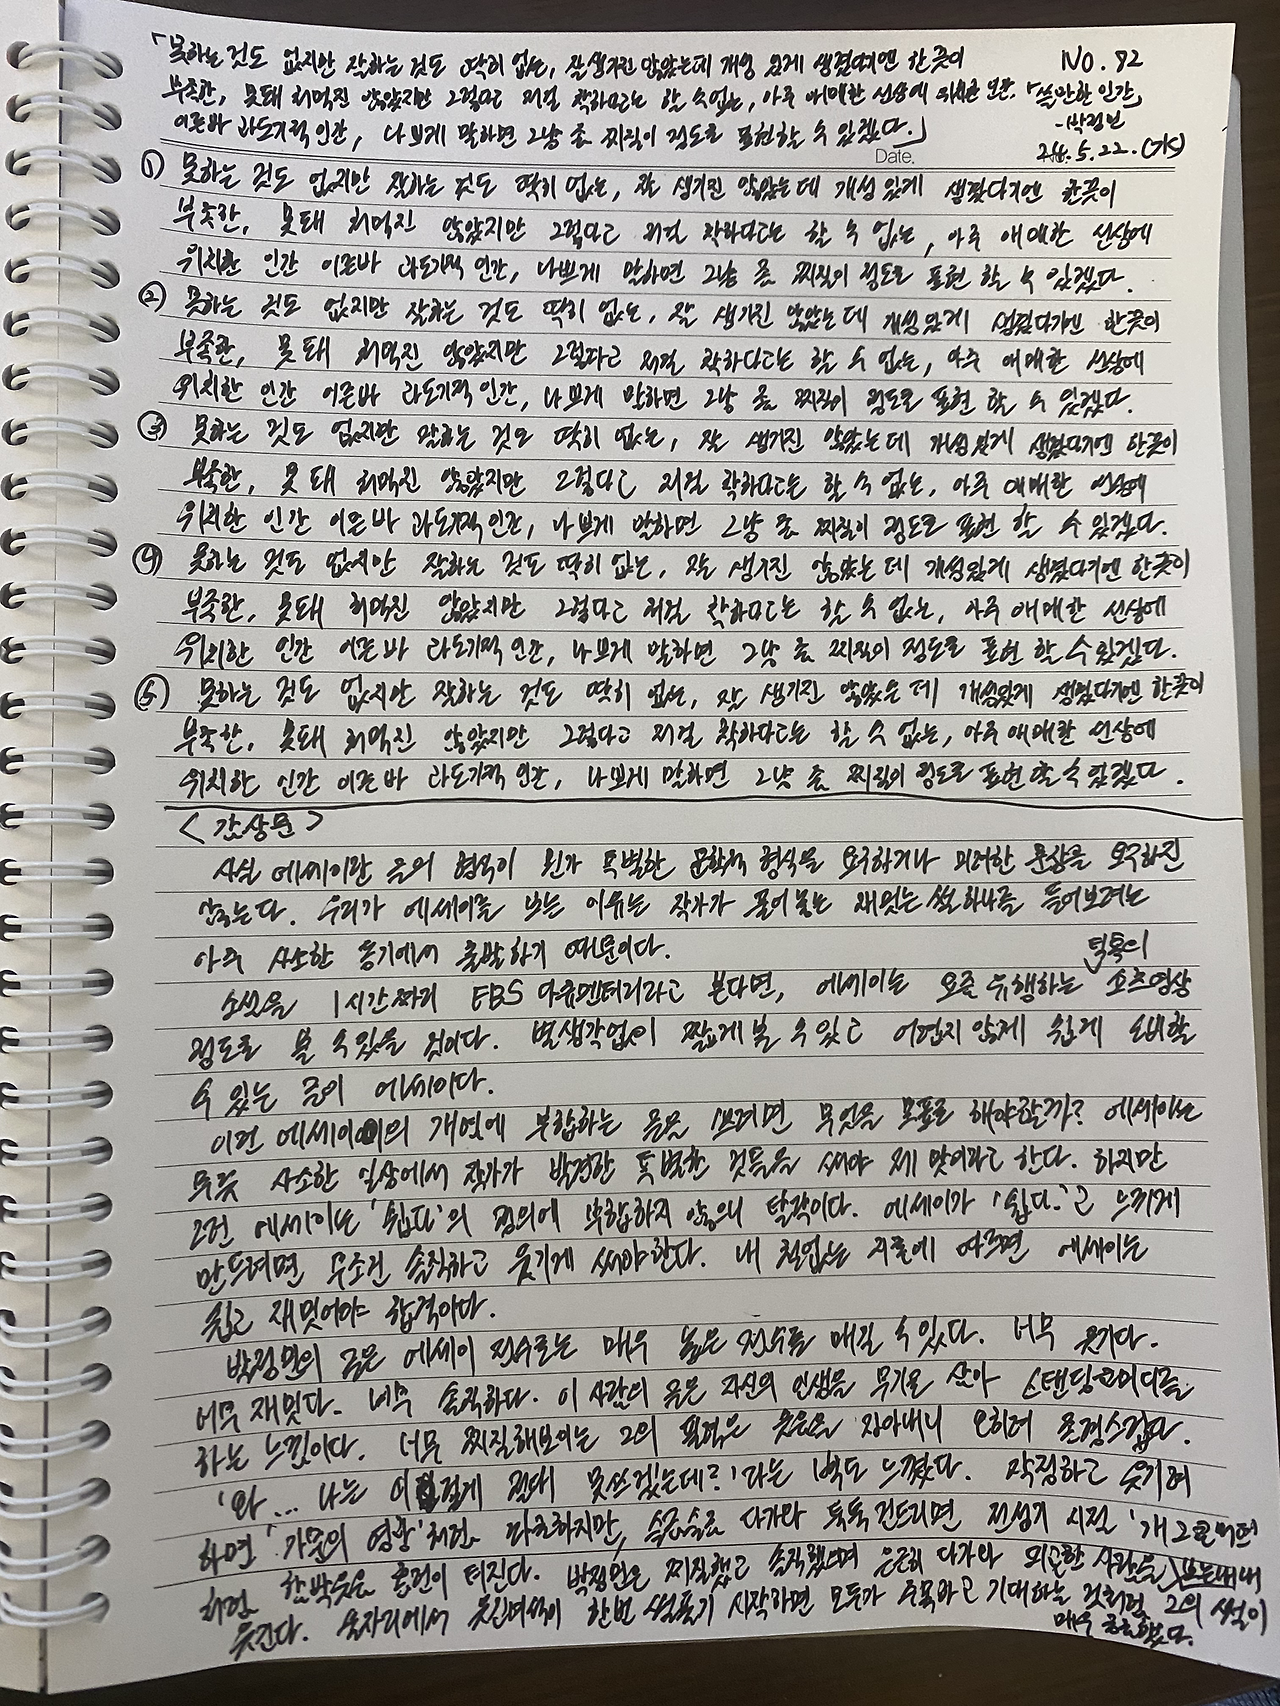 「못하는 것도 없지만 잘하는 것도 딱히 없는, 잘 생기진 않았는데 개성 있게 생겼다기엔 한끗이
No. 92
부족한, 못돼 처먹진 않았지만 그렇다고 저걸 착하다고는 할 수 없는, 아주 애매한 선상에 위치한 인간. 「쓸만한 인간」
이른바 과도기적 인간, 나쁘게 말하면 그냥 좀 찌질이 정도로 표현할 수 있겠다.」
-박정민
Date.
24.5.22.(水)
① 못하는 것도 없지만 잘하는 것도 딱히 없는, 잘 생기진 않았는데 개성있게 생겼다기엔 한끗이
부족한, 못돼 처먹진 않았지만 그렇다고 저걸 착하다고는 할 수 없는, 아주 애매한 선상에
위치한 인간 이른바 과도기적 인간, 나쁘게 말하면 그냥 좀 찌질이 정도로 표현 할 수 있겠다.
② 못하는 것도 없지만 잘하는 것도 딱히 없는, 잘 생기진 않았는데 개성있게 생겼다기엔 한끗이
부족한, 못돼 처먹진 않았지만 그렇다고 저걸 착하다고는 할 수 없는, 아주 애매한 선상에
위치한 인간 이른바 과도기적 인간, 나쁘게 말하면 그냥 좀 찌질이 정도로 표현 할 수 있겠다.
③ 못하는 것도 없지만 잘하는 것도 딱히 없는, 잘 생기진 않았는데 개성있게 생겼다기엔 한끗이
부족한, 못돼 처먹진 않았지만 그렇다고 저걸 착하다고는 할 수 없는, 아주 애매한 선상에
위치한 인간 이른바 과도기적 인간, 나쁘게 말하면 그냥 좀 찌질이 정도로 표현 할 수 있겠다.
④ 못하는 것도 없지만 잘하는 것도 딱히 없는, 잘 생기진 않았는데 개성있게 생겼다기엔 한끗이
부족한, 못돼 처먹진 않았지만 그렇다고 저걸 착하다고는 할 수 없는, 아주 애매한 선상에
위치한 인간 이른바 과도기적 인간, 나쁘게 말하면 그냥 좀 찌질이 정도로 표현 할 수 있겠다.
⑤ 못하는 것도 없지만 잘하는 것도 딱히 없는, 잘 생기진 않았는데 개성있게 생겼다기엔 한끗이
부족한, 못돼 처먹진 않았지만 그렇다고 저걸 착하다고는 할 수 없는, 아주 애매한 선상에
위치한 인간 이른바 과도기적 인간, 나쁘게 말하면 그냥 좀 찌질이 정도로 표현 할 수 있겠다.
<감상문>
사실 에세이란 글의 형식이 뭔가 특별한 문학적 형식을 요구하거나 미려한 문장을 요구하진
않는다. 우리가 에세이를 보는 이유는 작가가 풀어 놓는 재밌는 썰 하나를 들어보려는
아주 사소한 동기에서 출발하기 때문이다.
틱톡의
소설을 1시간짜리 EBS 다큐멘터리라고 본다면, 에세이는 요즘 유행하는 쇼츠영상
정도로 볼 수 있을 것이다. 별생각없이 짧게 볼 수 있고 어렵지 않게 쉽게 소비할
수 있는 글이 에세이다.
이런 에세이의 개념에 부합하는 글을 쓰려면 무엇을 목표로 해야할까? 에세이는
모름 사소한 일상에서 작가가 발견한 특별한 것들을 써야 제 맛이라고 한다. 하지만
그런 에세이는 '쉽다'의 정의에 부합하지 않으니 탈락이다. 에세이가 '쉽다.'고 느끼게
만드려면 무조건 솔직하고 웃기게 써야한다. 내 철없는 지론에 따르면 에세이는
쉽고 재밌어야 합격이다.
박정민의 글은 에세이 점수로는 매우 높은 점수를 매길 수 있다. 너무 웃기다.
너무 재밌다. 너무 솔직하다. 이 사람의 글은 자신의 인생을 무기로 삼아 스탠딩코미디를
하는 느낌이다. 너무 찌질해보이는 그의 필력은 웃음을 자아내니 오히려 존경스럽다.
'와... 나는 이렇게 절대 못쓰겠는데?'라는 벽도 느꼈다. 작정하고 웃기려
하면 '가문의 영광'처럼 따분하지만, 슬금슬금 다가와 툭툭 건드리면 전성기 시절 '개그콘서트'
처럼 함박웃음 훈련이 터진다. 박정민은 찌질했고 솔직했으며 은근히 다가와 피곤한 사람을
웃긴다. 술자리에서 웃긴녀석이 한번 썰풀기 시작하면 모두가 주목하고 기대하는 것처럼, 그의 썰이
매우